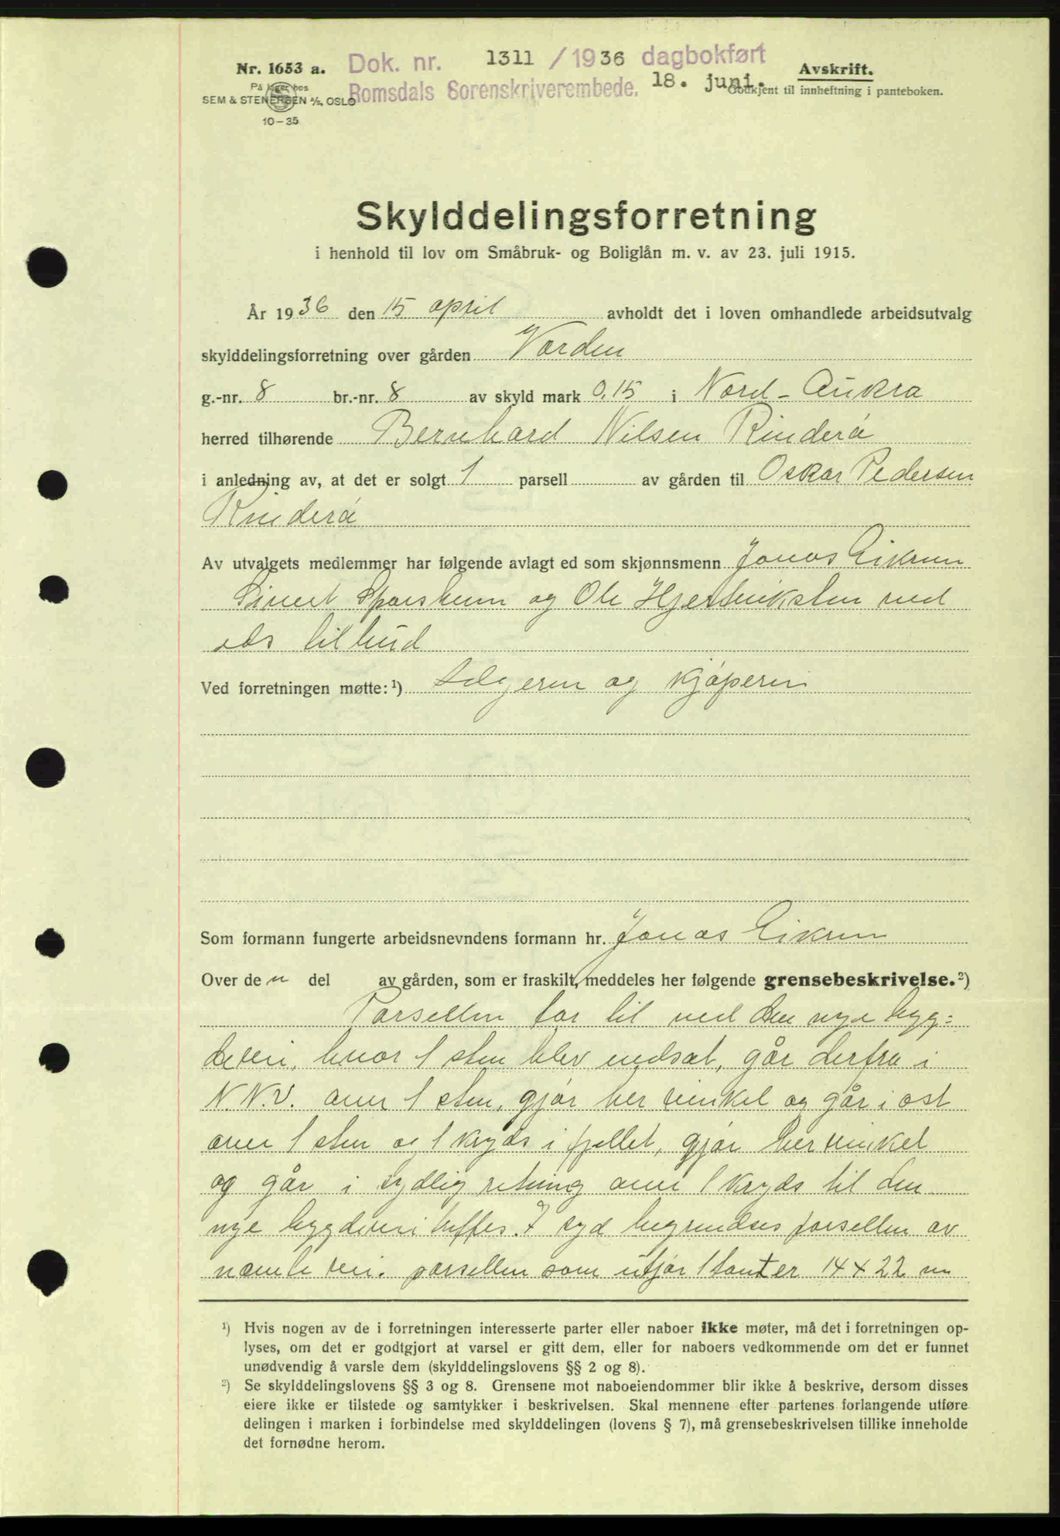 Nr. 1653 a.
På lager hos
SEM & STENERSEN A/S, OSLO
10-35
Dok. nr. 1311 / 1936 dagbokført
Romsdals Sorenskriverembede. 18. juni.
Avskrift.
Godkjent til innheftning i panteboken.
Skylddelingsforretning
i henhold til lov om Småbruk- og Boliglån m. v. av 23. juli 1915.
År 1936 den 15 april avholdt det i loven omhandlede arbeidsutvalg
skylddelingsforretning over gården Varden
g.-nr. 8 br.-nr. 8 av skyld mark 0,15 i Nord-Aukra
herred tilhørende Bernhard Nilsen Rinderö
i anledning av, at det er solgt 1 parsell av gården til Oskar Pedersen
Rinderö
Av utvalgets medlemmer har følgende avlagt ed som skjønnsmenn Jonas Eikrem
Sivert og Ole ved
eds tilbud
Ved forretningen møtte: ¹) selgeren og kjøperen
Som formann fungerte arbeidsnevndens formann hr. Jonas Eikrem
Over den del av gården, som er fraskilt, meddeles her følgende grensebeskrivelse.²)
Parsellen tar til ved den nye byg=
devei, hvor 1 sten blev nedsat, går derfra i
N.N.V. over 1 sten, gjør her vinkel og går i ost
over 1 sten og 1 kryds i fjellet, gjør her vinkel
og går i sydlig retning over 1 kryds til den
nye bygdevei treffes. I syd begrendses parsellen av
nævnte vei. parsellen som utgjør 1 tomt er 14 x 22 m
¹) Hvis nogen av de i forretningen interesserte parter eller naboer ikke møter, må det i forretningen op-
lyses, om det er godtgjort at varsel er gitt dem, eller for naboers vedkommende om det er funnet
unødvendig å varsle dem (skylddelingslovens §§ 2 og 8).
²) Se skylddelingslovens §§ 3 og 8. Grensene mot naboeiendommer blir ikke å beskrive, dersom disses
eiere ikke er tilstede og samtykker i beskrivelsen. Skal mennene efter partenes forlangende utføre
delingen i marken i forbindelse med skylddelingen (lovens § 7), må grensebeskrivelsen tillike inneholde
det fornødne herom.